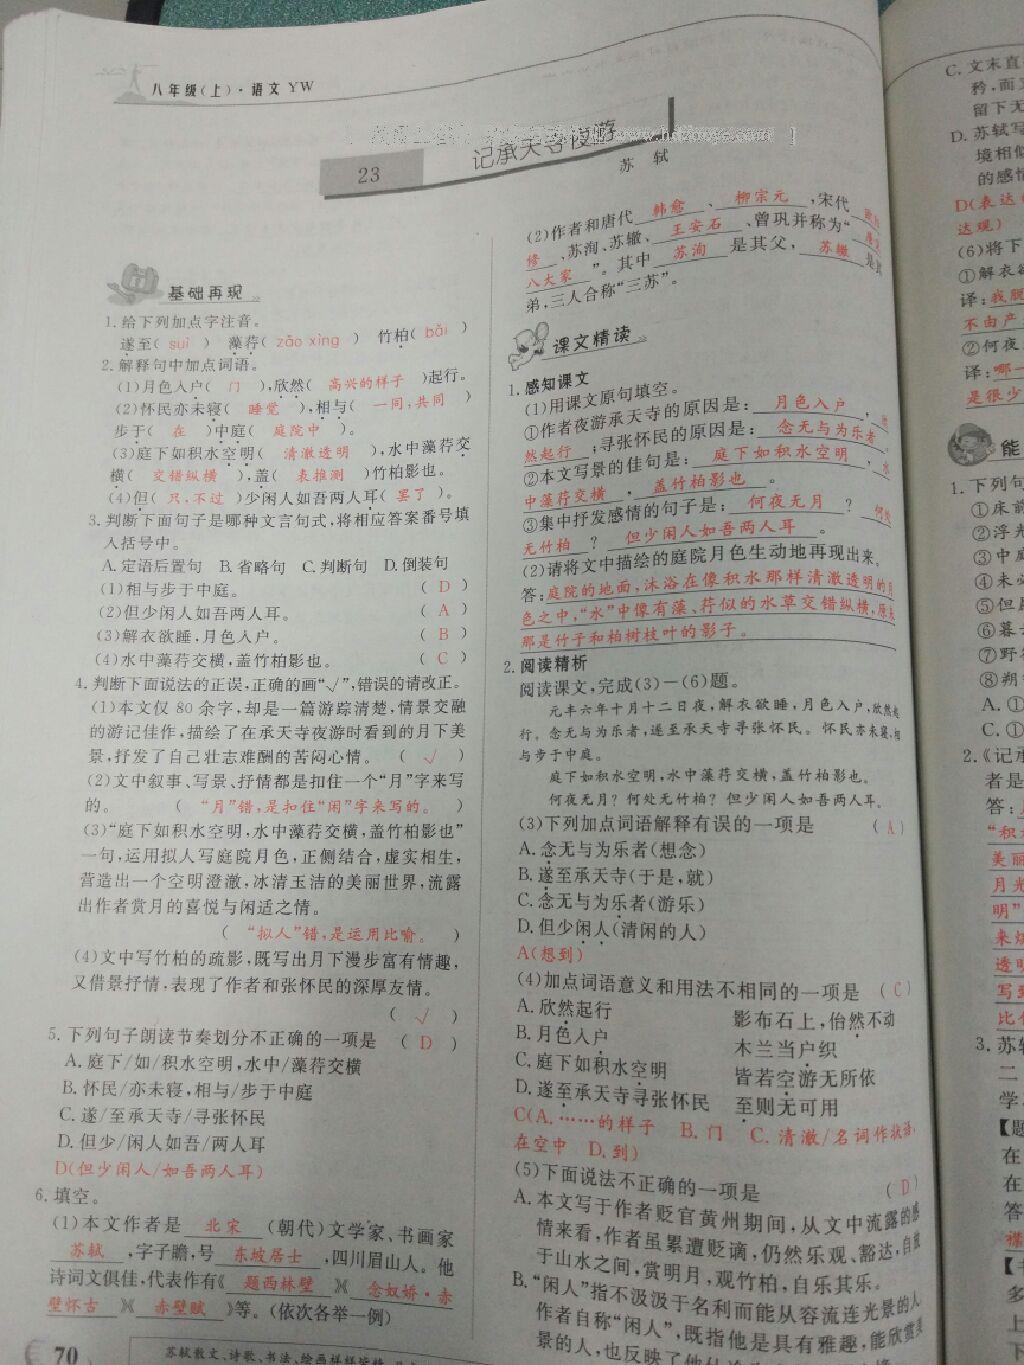 八年级(上)·语文 YW
23
记承天寺夜游
苏 轼
基础再现
1.给下列加点字注音。
遂至( suì ) 藻荇( zǎo xìng ) 竹柏( bǎi )
2.解释句中加点词语。
(1)月色入户( 门 ),欣然( 高兴的样子 )起行。
(2)怀民亦未寝( 睡觉 ),相与( 一同,共同 )
步于( 在 )中庭( 庭院中 )。
(3)庭下如积水空明( 清澈透明 ),水中藻荇交
横( 交错纵横 ),盖( 表推测 )竹柏影也。
(4)但( 只,不过 )少闲人如吾两人耳( 罢了 )。
3.判断下面句子是哪种文言句式,将相应答案番号填
入括号中。
A.定语后置句 B.省略句 C.判断句 D.倒装句
(1)相与步于中庭。 ( D )
(2)但少闲人如吾两人耳。 ( A )
(3)解衣欲睡,月色入户。 ( B )
(4)水中藻荇交横,盖竹柏影也。 ( C )
4.判断下面说法的正误,正确的画“√”,错误的请改正。
(1)本文仅 80 余字,却是一篇游踪清楚,情景交融
的游记佳作,描绘了在承天寺夜游时看到的月下美
景,抒发了自己壮志难酬的苦闷心情。 ( √ )
(2)文中叙事、写景、抒情都是扣住一个“月”字来写
的。 ( “月”错,是扣住“闲”字来写的。 )
(3)“庭下如积水空明,水中藻荇交横,盖竹柏影也”
一句,运用拟人写庭院月色,正侧结合,虚实相生,
营造出一个空明澄澈,冰清玉洁的美丽世界,流露
出作者赏月的喜悦与闲适之情。
( “拟人”错,是运用比喻。 )
(4)文中写竹柏的疏影,既写出月下漫步富有情趣,
又借景抒情,表现了作者和张怀民的深厚友情。
( √ )
5.下列句子朗读节奏划分不正确的一项是 ( D )
A.庭下/如/积水空明,水中/藻荇交横
B.怀民/亦未寝,相与/步于中庭
C.遂/至承天寺/寻张怀民
D.但少/闲人如吾/两人耳
D(但少闲人/如吾两人耳)
6.填空。
(1)本文作者是 北宋 (朝代)文学家、书画家
苏轼 ,字子瞻,号 东坡居士 ,四川眉山人。他
诗词文俱佳,代表作有《 题西林壁 》《 念奴娇·赤
壁怀古 》《 赤壁赋 》等。(依次各举一例)
70
苏轼散文、诗歌、书法、绘画样样皆精
(2)作者和唐代 韩愈 、 柳宗元 ,宋代
修 、苏洵、苏辙、 王安石 、曾巩并称为“
八大家 ”。其中 苏洵 是其父, 苏辙 是其
弟,三人合称“三苏”。
课文精读
1.感知课文
(1)用课文原句填空。
①作者夜游承天寺的原因是: 月色入户 ,
然起行 ;寻张怀民的原因是: 念无与为乐者
②本文写景的佳句是: 庭下如积水空明 , 水
中藻荇交横 , 盖竹柏影也 。
③集中抒发感情的句子是: 何夜无月 ? 何处
无竹柏 ? 但少闲人如吾两人耳 。
(2)请将文中描绘的庭院月色生动地再现出来。
答:庭院的地面,沐浴在像积水那样清澈透明的月
色之中,“水”中像有藻、荇似的水草交错纵横,原来
那是竹子和柏树枝叶的影子。
2.阅读精析
阅读课文,完成(3)—(6)题。
元丰六年十月十二日夜,解衣欲睡,月色入户,欣然起
行。念无与为乐者,遂至承天寺寻张怀民。怀民亦未寝,相
与步于中庭。
庭下如积水空明,水中藻荇交横,盖竹柏影也。
何夜无月?何处无竹柏?但少闲人如吾两人耳。
(3)下列加点词语解释有误的一项是 ( A )
A.念无与为乐者(想念)
B.遂至承天寺(于是,就)
C.念无与为乐者(游乐)
D.但少闲人(清闲的人)
A(想到)
(4)加点词语意义和用法不相同的一项是 ( C )
A.欣然起行 影布石上,佁然不动
B.月色入户 木兰当户织
C.庭下如积水空明 皆若空游无所依
D.遂至承天寺寻张怀民 至则无可用
C(A.……的样子 B.门 C.清澈/名词作状语,
在空中 D.到)
(5)下面说法不正确的一项是 ( D )
A.本文写于作者贬官黄州期间,从文中流露的感
情来看,作者虽累遭贬谪,仍然乐观、豁达,自放
于山水之间,赏明月,观竹柏,自乐其乐。
B.“闲人”指不汲汲于名利而能从容流连光景的人
作者自称“闲人”,既指他是具有雅趣,能欣赏美
景的人,也反映了他
C.文末直
矜,而
留下无
D.苏轼写
境相似
的感情
D(表达
达观)
(6)将下
①解衣欲
译:我脱
不由产
②何夜
译:哪一
是很少
能
1.下列句
①床前
②浮光
③中庭
④未必
⑤但
⑥暮
⑦野
⑧朔
A.①
C.①
2.《记承
者是
答:
“积
美丽
月光
明”
来
透明
写
比
3.苏轼
二
学
【题
在
在
答